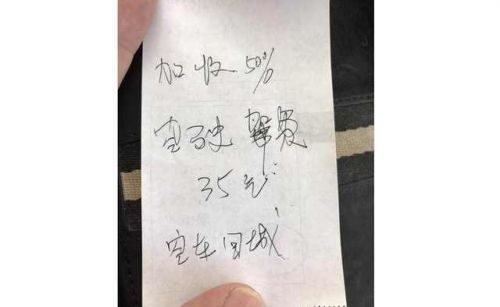 加收50%
空驶费
35元
空车回城